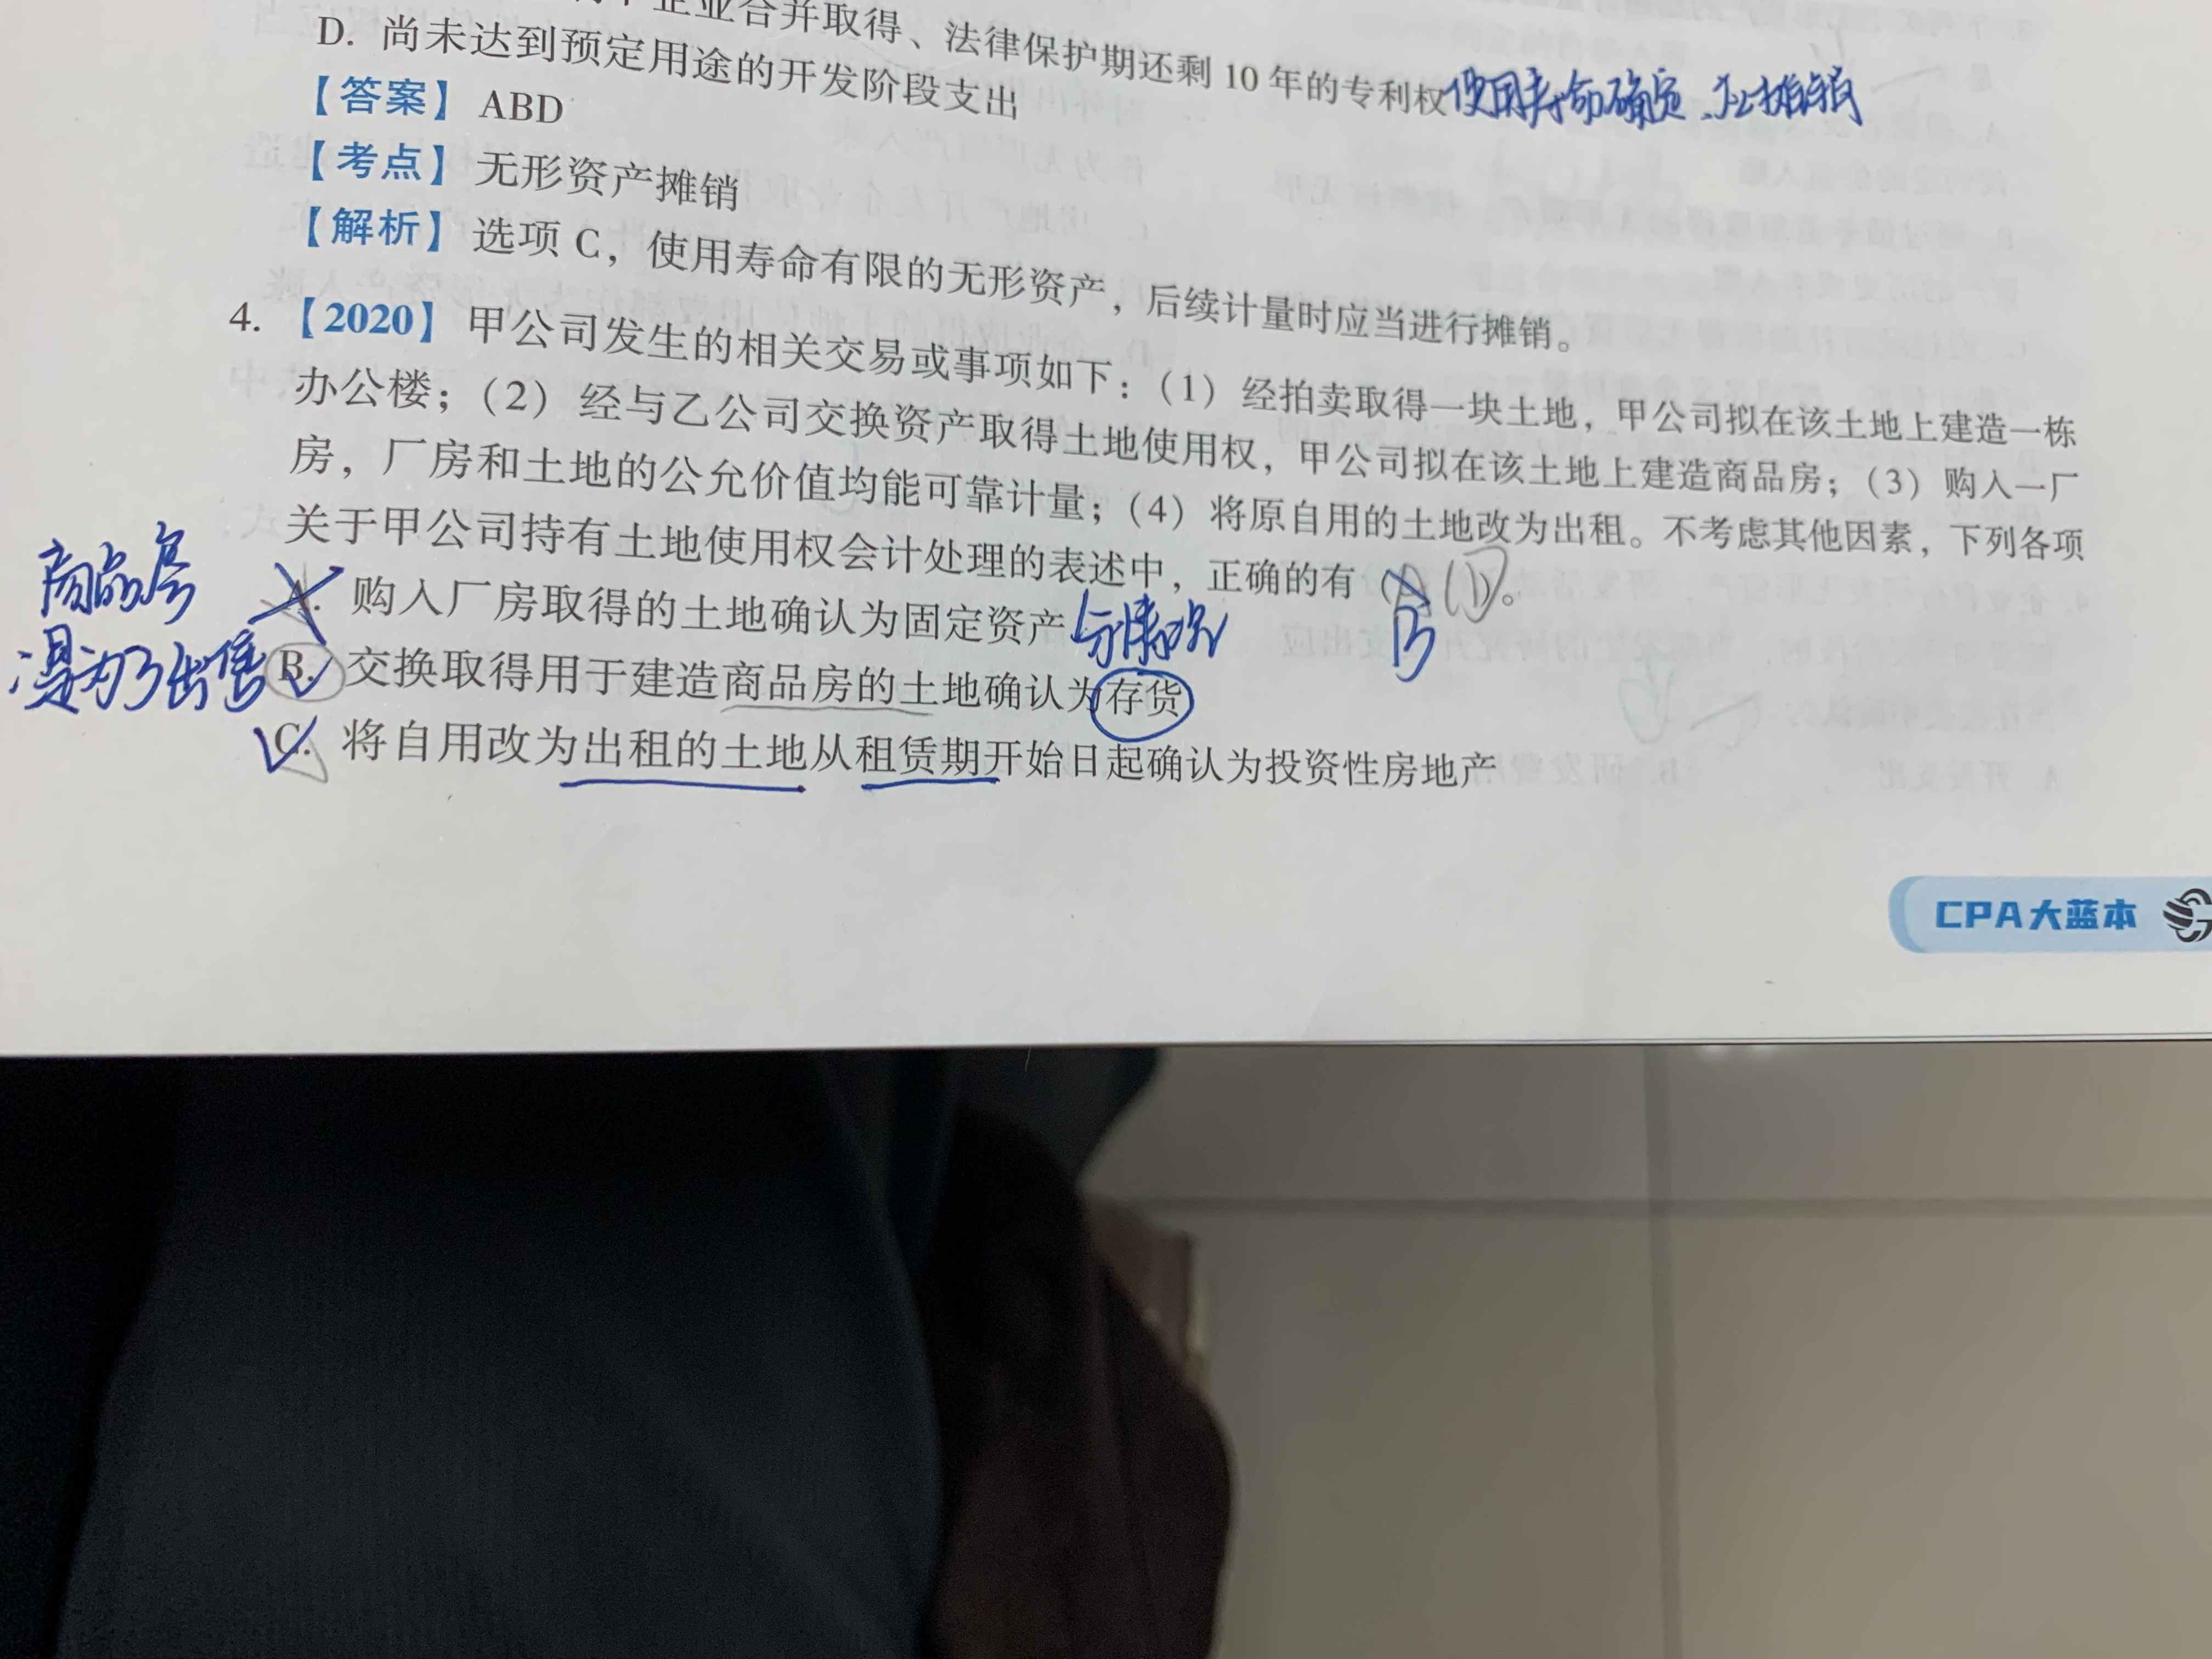 企业合并取得、法律保护期还剩 10 年的专利权 使用寿命确定、应摊销
D. 尚未达到预定用途的开发阶段支出
【答案】ABD
【考点】无形资产摊销
【解析】选项 C，使用寿命有限的无形资产，后续计量时应当进行摊销。
4. 【2020】甲公司发生的相关交易或事项如下：（1）经拍卖取得一块土地，甲公司拟在该土地上建造一栋
办公楼；（2）经与乙公司交换资产取得土地使用权，甲公司拟在该土地上建造商品房；（3）购入一厂
房，厂房和土地的公允价值均能可靠计量；（4）将原自用的土地改为出租。不考虑其他因素，下列各项
关于甲公司持有土地使用权会计处理的表述中，正确的有（ ）。
B
A. 购入厂房取得的土地确认为固定资产 分情况
商品房
是为了出售
B. 交换取得用于建造商品房的土地确认为存货
C. 将自用改为出租的土地从租赁期开始日起确认为投资性房地产
CPA大蓝本